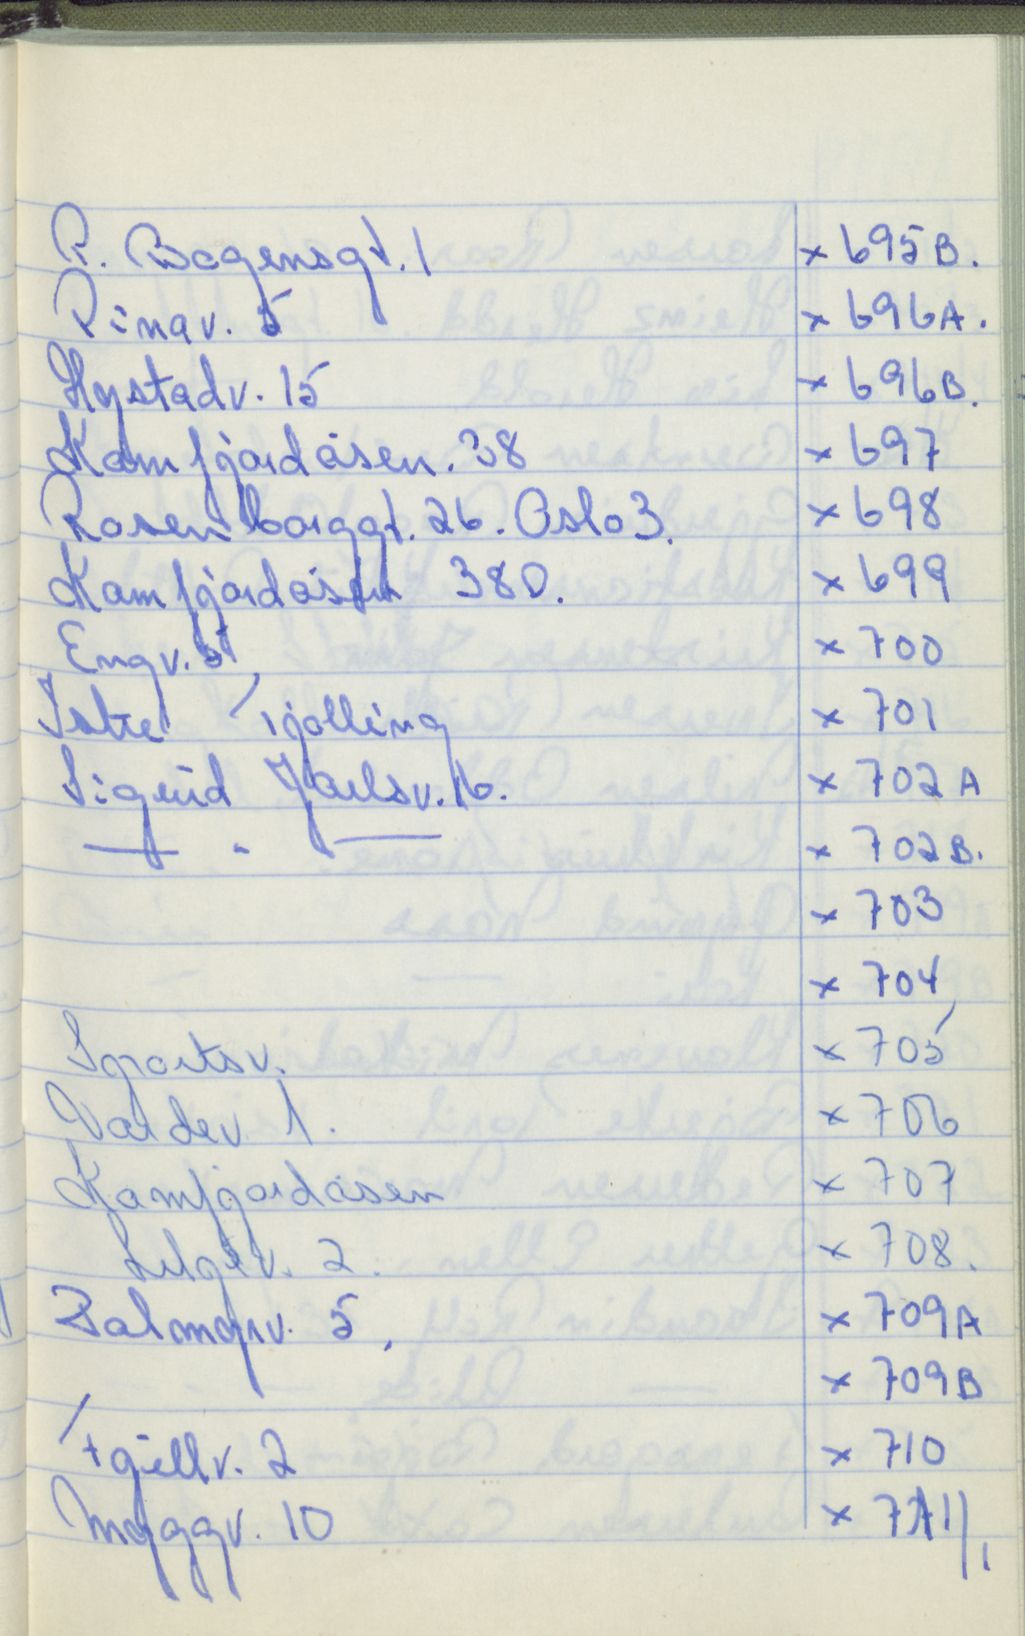 P. Bogensgt. 1 x 695B.
Ringv. 5 x 696A.
Hystadv. 15 x 696B.
Kamfjordåsen. 38 x 697
Rosenborggt. 26. Oslo 3. x 698
Kamfjordåsen 38D. x 699
Engv. 5 x 700
Istre Tjølling x 701
Sigrid Jarlsv. 16. x 702A
— " — x 702B.
x 703
x 704
Sportsv. x 705
Vardev 1. x 706
Kamfjordåsen x 707
2. x 708.
5, x 709A
x 709B
2 x 710
Myggv. 10 x 711